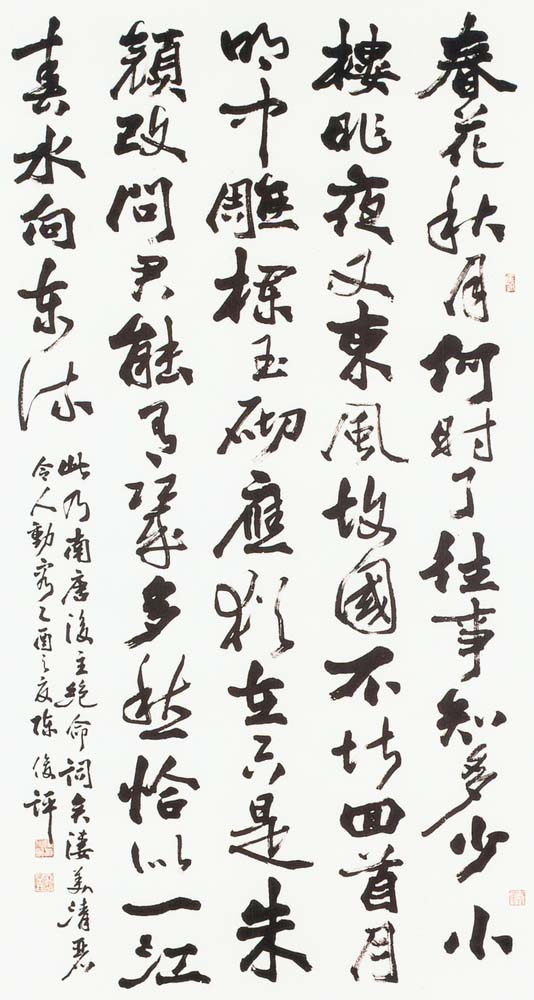 春花秋月何時了往事知多少小
樓昨夜又東風故國不堪回首月
明中雕欄玉砌應猶在只是朱
顏改問君能有幾多愁恰似一江
春水向东流
此乃南唐後主絕命詞矣淒美清
令人動容乙酉之夏陳俊評